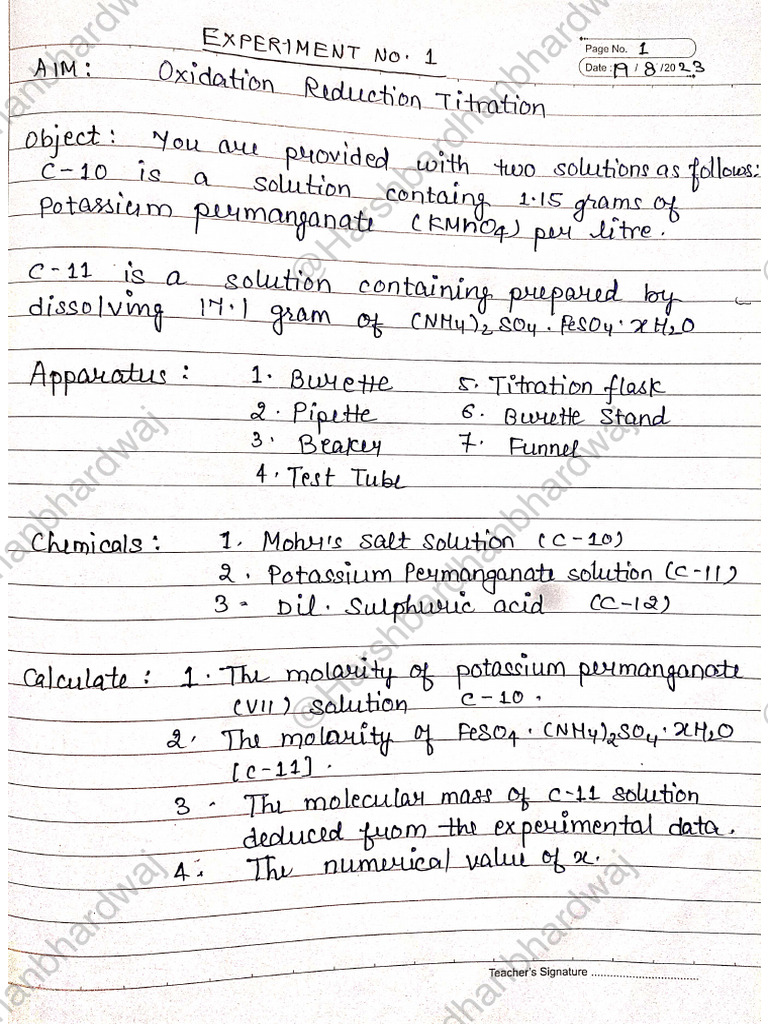 EXPERIMENT NO. 1
Page No. 1
Date: 19 / 8 / 2023
AIM: Oxidation Reduction Titration
Object: You are provided with two solutions as follows:
C-10 is a solution containg 1.15 grams of
Potassium permanganate (KMnO4) per litre.
C-11 is a solution containing prepared by
dissolving 17.1 gram of (NH4)2 SO4. FeSO4. xH2O
Apparatus: 1. Burette 5. Titration flask
2. Pipette 6. Burette Stand
3. Beaker 7. Funnel
4. Test Tube
Chemicals: 1. Mohr's salt solution (C-10)
2. Potassium Permanganate solution (C-11)
3- Dil. Sulphuric acid (C-12)
Calculate: 1. The molarity of potassium permanganate
(VII) solution C-10.
2. The molarity of FeSO4. (NH4)2SO4. xH2O
[C-11].
3. The molecular mass of C-11 solution
deduced from the experimental data.
4. The numerical value of x.
Teacher's Signature
@Harshbardhanbhardwaj